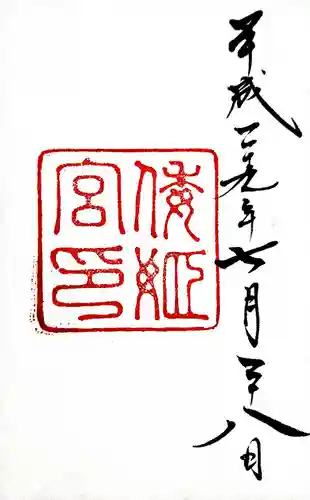 平成二十九年七月二十八日
倭姫
宮印